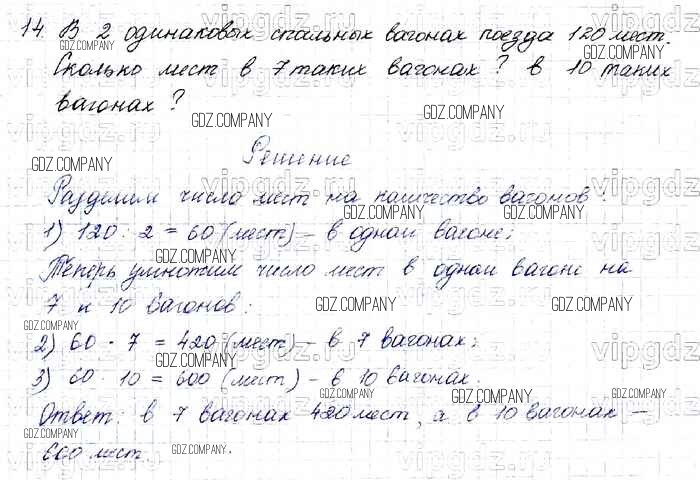 14. В 2 одинаковых спальных вагонах поезда 120 мест.
Сколько мест в 7 таких вагонах? в 10 таких
вагонах?
Решение
Разделим число мест на количество вагонов:
1) 120 : 2 = 60 (мест) – в одном вагоне;
Теперь умножим число мест в одном вагоне на
7 и 10 вагонов:
2) 60 · 7 = 420 (мест) – в 7 вагонах;
3) 60 · 10 = 600 (мест) – в 10 вагонах.
Ответ: в 7 вагонах 420 мест, а в 10 вагонах –
600 мест.
GDZ.COMPANY
vipgdz.ru